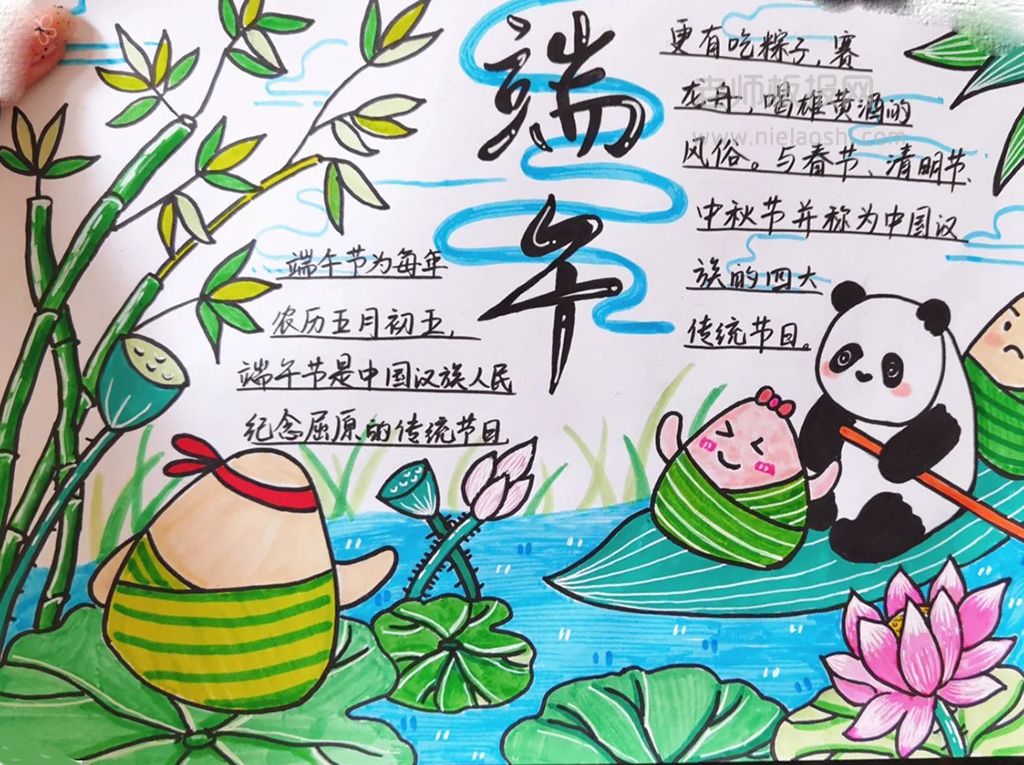 端午
端午节为每年
农历五月初五，
端午节是中国汉族人民
纪念屈原的传统节日
更有吃粽子，赛
龙舟，喝雄黄酒的
风俗。与春节、清明节、
中秋节并称为中国汉
族的四大
传统节日。
老师板报网
www.nielaosh.com